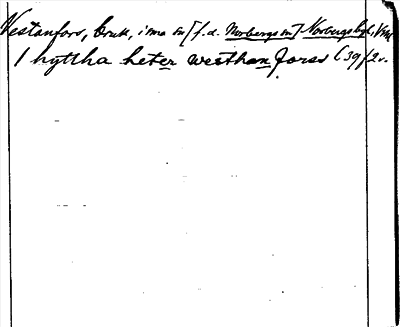 Västanfors, bruk, i ma sn [f.d. Norbergs sn] Norbergs bgl, Vm
1 hyttha heter westhan forss (39/2v.